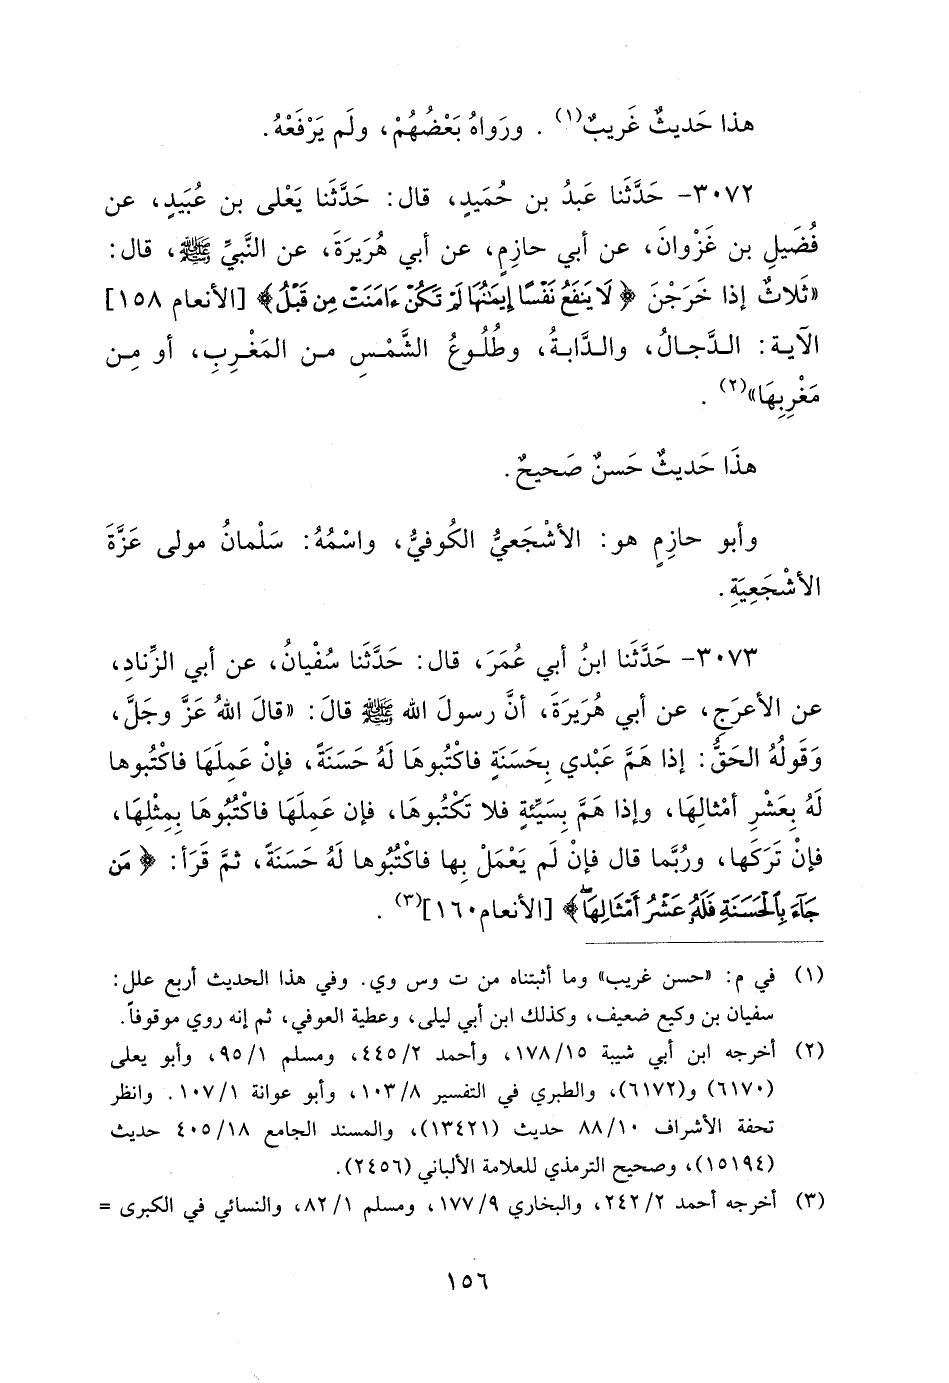 هذا حَديثٌ غَريبٌ(١) . ورَواهُ بَعْضُهُمْ، ولَم يَرْفَعْهُ.
٣٠٧٢- حَدَّثَنا عَبدُ بن حُمَيدٍ، قال: حَدَّثَنا يَعْلى بن عُبَيدٍ، عن
فُضَيلِ بن غَزْوانَ، عن أبي حازِمٍ، عن أبي هُرَيرَةَ، عن النَّبيِّ ﷺ، قال:
«ثَلاثٌ إذا خَرَجْنَ ﴿لَا يَنفَعُ نَفْسًا إِيمَٰنُهَا لَمْ تَكُنْ ءَامَنَتْ مِن قَبْلُ﴾ [الأنعام ١٥٨]
الآية: الدَّجالُ، والدَّابةُ، وطُلُوعُ الشَّمْسِ من المَغْرِبِ، أو مِن
مَغْرِبِهَا»(٢) .
هذَا حَديثٌ حَسنٌ صَحيحٌ.
وأبو حازِمٍ هو: الأشْجَعيُّ الكُوفيُّ، واسْمُهُ: سَلْمانُ مولى عَزَّةَ
الأشْجَعِيَةِ.
٣٠٧٣- حَدَّثَنا ابنُ أبي عُمَرَ، قال: حَدَّثَنا سُفْيانُ، عن أبي الزِّنادِ،
عن الأعرَجِ، عن أبي هُرَيرَةَ، أنَّ رسولَ الله ﷺ قالَ: «قالَ اللهُ عَزَّ وجَلَّ،
وَقَولُهُ الحَقُّ: إذا هَمَّ عَبْدي بِحَسَنَةٍ فاكْتُبوهَا لَهُ حَسَنَةً، فإنْ عَمِلَهَا فاكْتُبوها
لَهُ بِعَشْرِ أمْثالِهَا، وإذا هَمَّ بِسَيِّئةٍ فلا تَكْتُبوهَا، فإن عَمِلَهَا فاكْتُبُوهَا بِمِثْلِهَا،
فإنْ تَرَكَها، ورُبَّما قال فإنْ لَم يَعْمَلْ بِها فاكْتُبُوها لَهُ حَسَنَةً، ثمَّ قَرَأ: ﴿مَن
جَآءَ بِٱلْحَسَنَةِ فَلَهُۥ عَشْرُ أَمْثَالِهَا﴾ [الأنعام١٦٠](٣) .
(١) في م: «حسن غريب» وما أثبتناه من ت وس وي. وفي هذا الحديث أربع علل:
سفيان بن وكيع ضعيف، وكذلك ابن أبي ليلى، وعطية العوفي، ثم إنه روي موقوفاً.
(٢) أخرجه ابن أبي شيبة ١٧٨/١٥، وأحمد ٤٤٥/٢، ومسلم ٩٥/١، وأبو يعلى
(٦١٧٠) و(٦١٧٢)، والطبري في التفسير ١٠٣/٨، وأبو عوانة ١٠٧/١. وانظر
تحفة الأشراف ٨٨/١٠ حديث (١٣٤٢١)، والمسند الجامع ٤٠٥/١٨ حديث
(١٥١٩٤)، وصحيح الترمذي للعلامة الألباني (٢٤٥٦).
(٣) أخرجه أحمد ٢٤٢/٢، والبخاري ١٧٧/٩، ومسلم ٨٢/١، والنسائي في الكبرى =
١٥٦